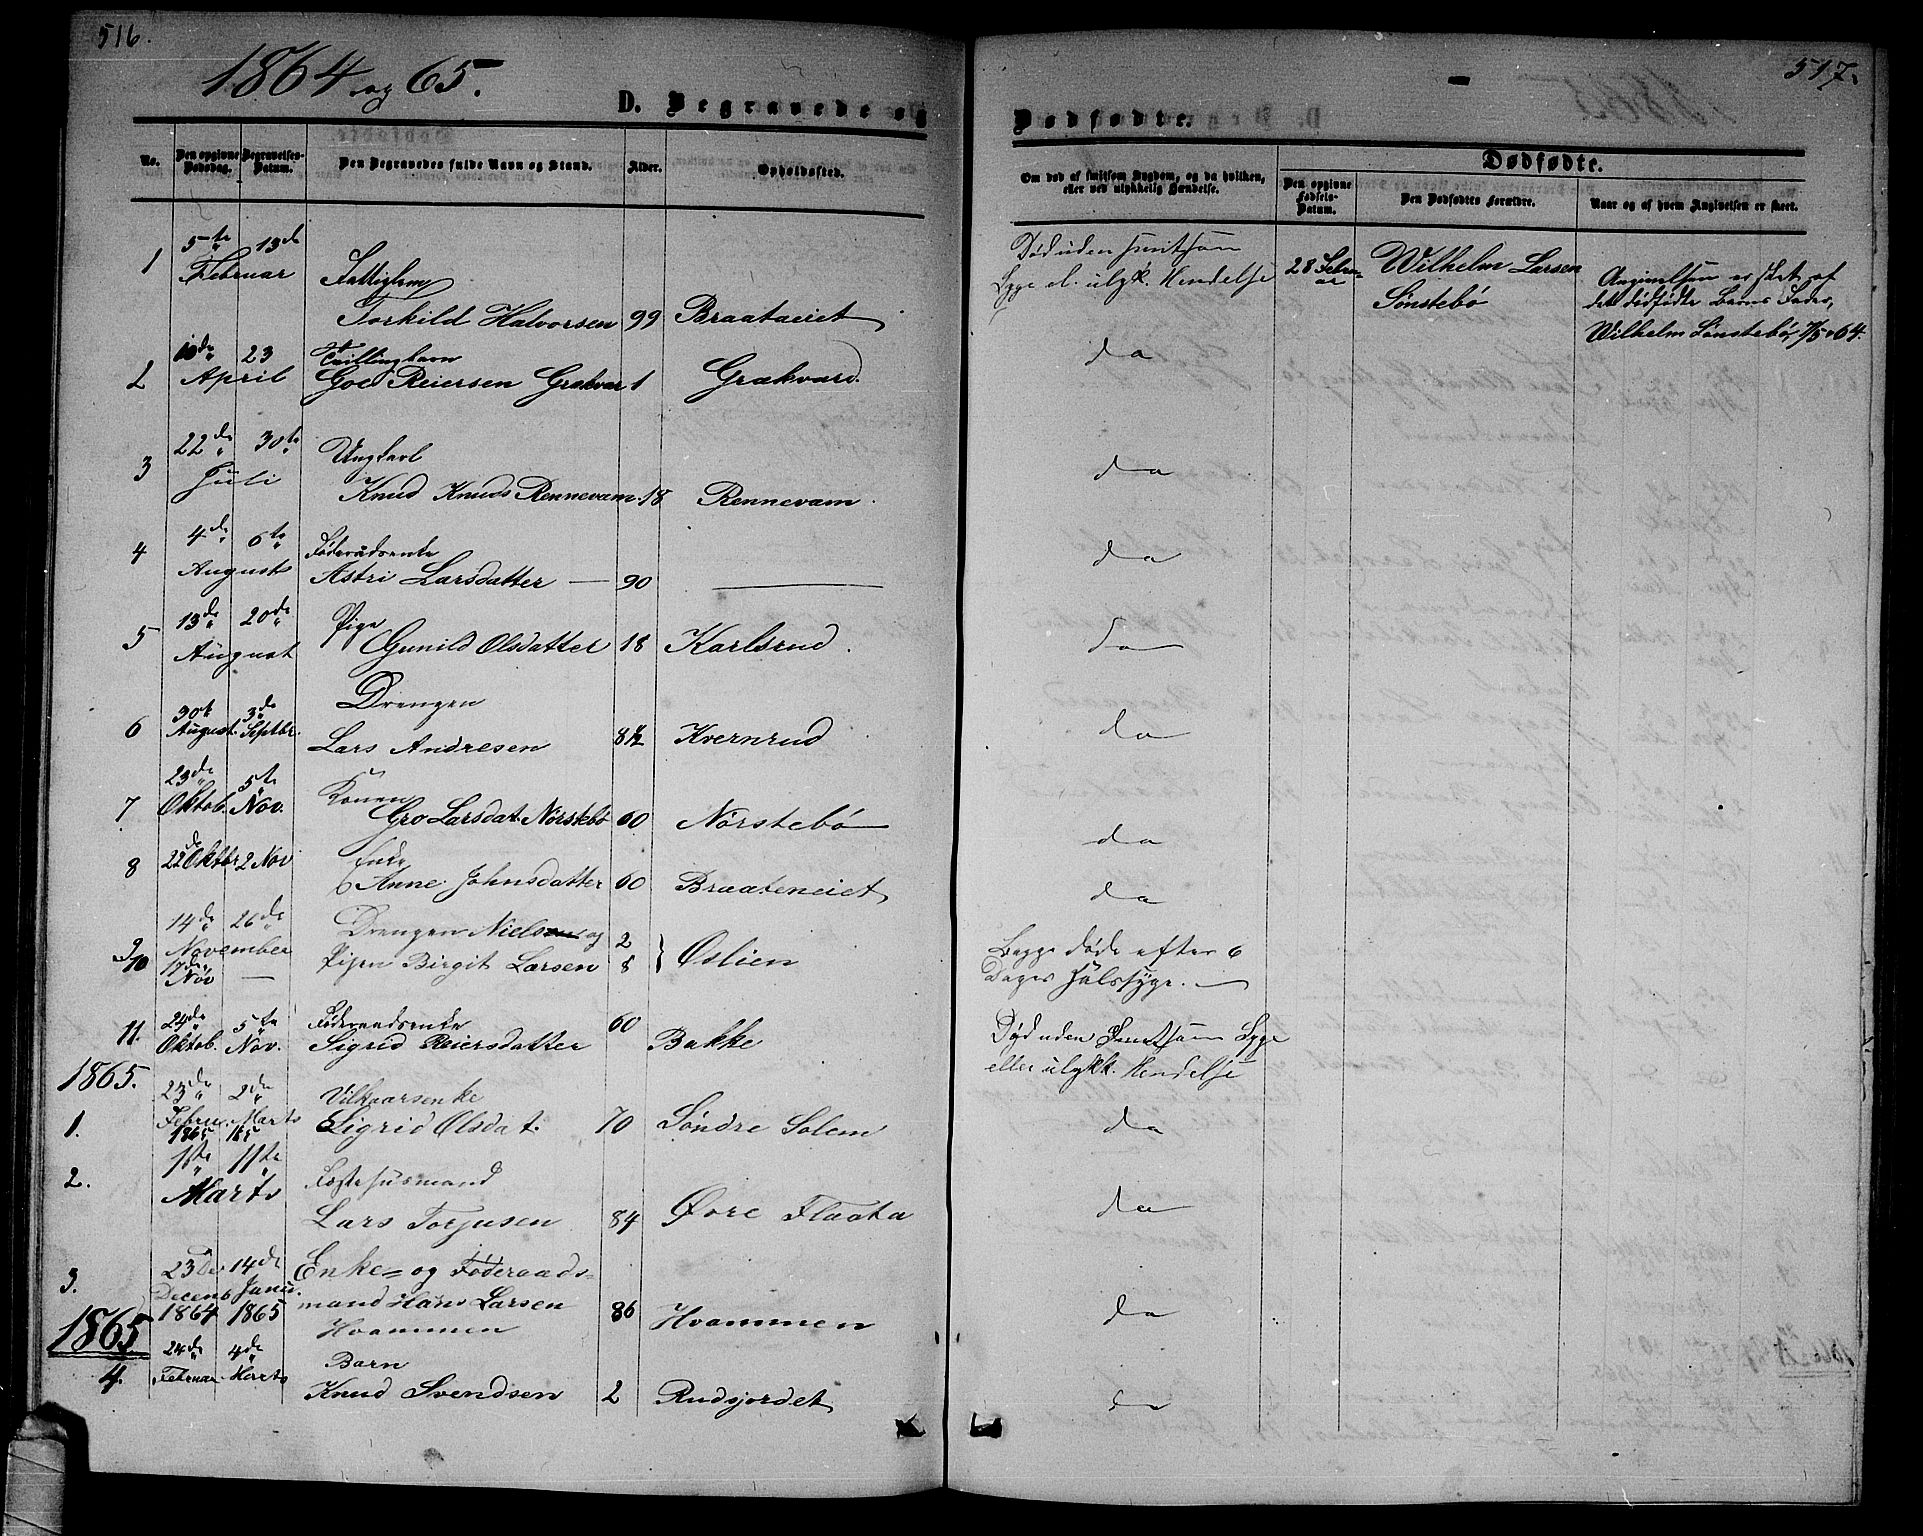 516.
1864 og 65.
D. Begravede og
No. Den opgivne Dødsdag. Begravelses-Datum. Den Begravedes fulde Navn og Stand. Alder. Opholdssted.
1 5te 13de
Februar
Fattiglem
Torkild Halvorsen 99 Braataeiet
2 10de 23 Tvillingbarn
April Goe Reiersen Grækvar 1 Grækvard.
3 22de 30te Ungkarl
Juli
Knud Knuds Rennevam. 18 Rennevam.
4 4de 6te Føderådsenke
August Astri Larsdatter — 90 ———
5 13de 20de Pige
August Gunild Olsdatter 18 Karlsrud.
6 30te 3de Drengen
August. Septbr. Lars Andresen 8½ Kvernrud
7 23de 5te Konen
Oktob. Nov. Gro Larsdat. Nørskebø 60 Nørstebø
8 22de Oktbr 2 Nov Enke
Anne Johnsdatter 60 Braateneiet
9 14de 26de Drengen Niels og 2
November
10 17de Nov — Pigen Birgit Larsen 8 } Øslien
11. 24de 5te Føderaadsenke 60
Oktob. Nov. Sigrid Reiersdatter Bakke
1865.
1. 23de 2de Vilkaarsenke
Februar Marts Sigrid Olsdat. 70 Søndre Solem
1865 1865
2. 1ste 11te
Marts Lars Torjusen 84 Øvre Flaata
3. 23de 14de Enke= og Føderaads=
Decemb Janu. mand Hans Larsen 86 Hvammen
1864 1865 Hvammen
1865
4. 24de 4de Barn
Februar Marts Knud Svendsen 2 Rudsjordet
517.
Dødfødte.
Om død af smitsom Sygdom, og da hvilken, eller ved ulykkelig Hændelse. Dødfødte.
Den opgivne Fødsels-Datum. Den Dødfødtes Forældre. Naar og af hvem Angivelsen er skeet.
Død uden smitsom
Syge el. ulykk. Hendelse 28 Februar Wilhelm Larsen Sønstebö
Angivelsen er skeet af
det dødfødte Barns Fader,
Wilhelm Sønstebø, 7/5 64.
da
da
da
da
da
da
da
Begge døde efter 6
Dages Halssyge.
Død uden Smitsom Syge
eller ulykk. Hendelse
da
da
da
da